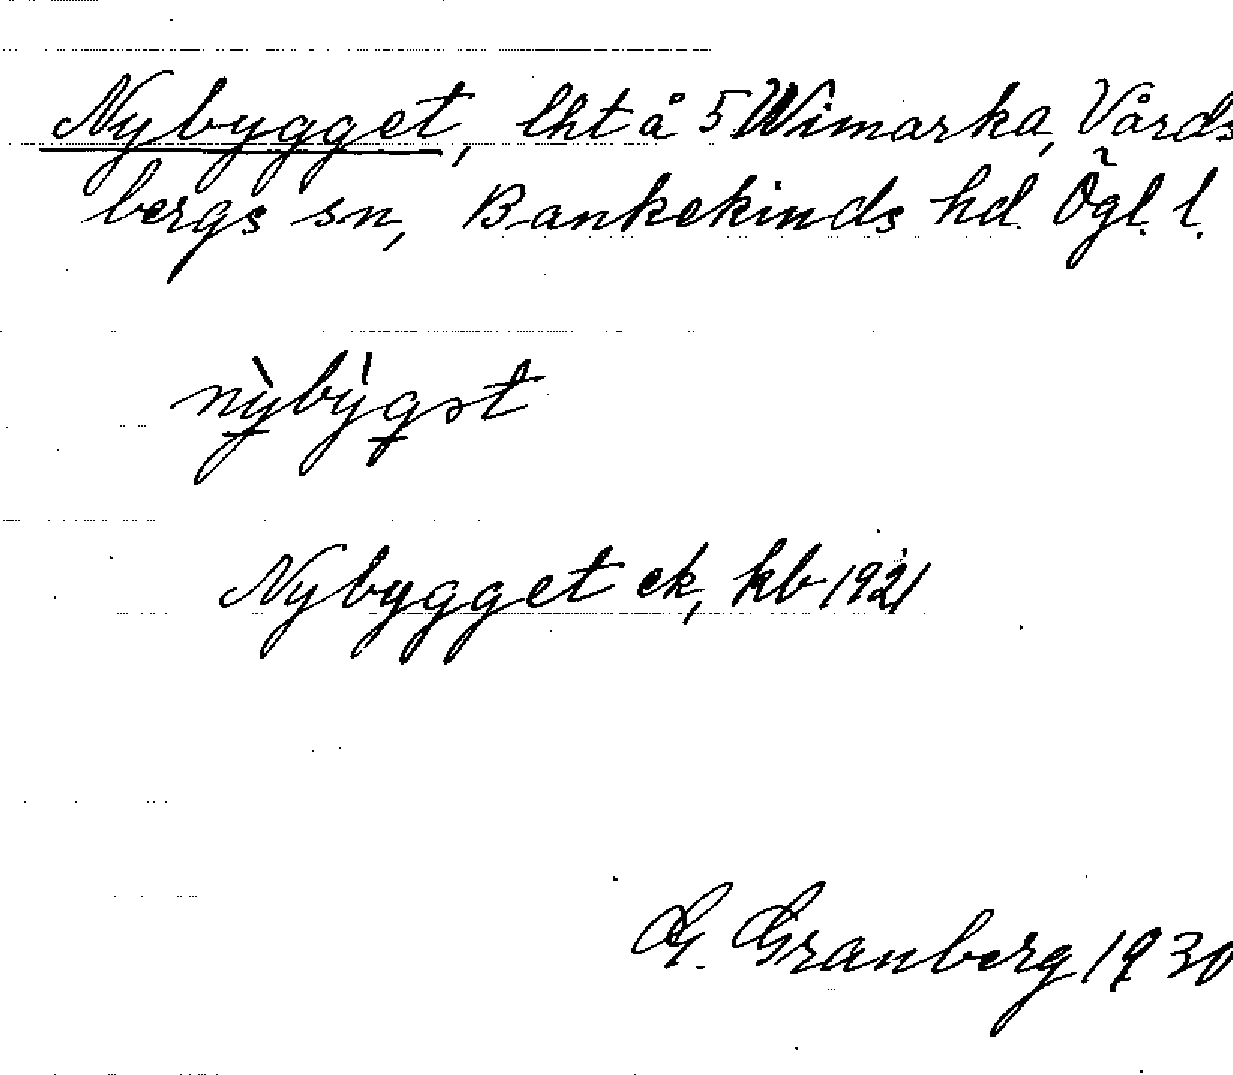 Nybygget, lht å 5 Wimarka, Vårds
bergs sn, Bankekinds hd. Ögl. l.
nỳbẏgət
Nybygget ek, kb 1921
G. Granberg 1930